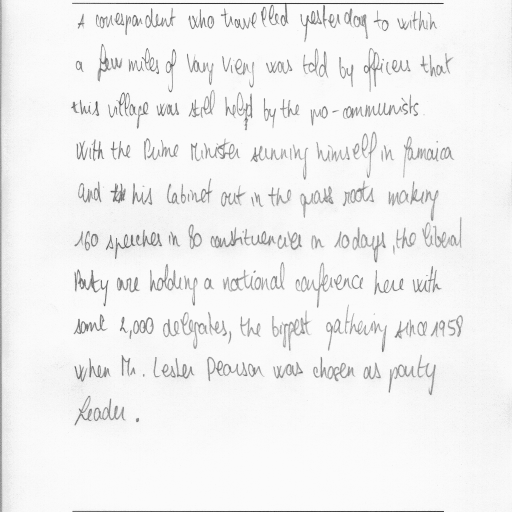 A correspondent who travelled yesterday to within
a few miles of Vang Vieng was told by officers that
this village was still held by the pro-communists.
With the Prime Minister sunning himself in Jamaica
and his Cabinet out in the grass roots making
160 speeches in 80 constituencies on 10 days, the liberal
Party are holding a national conference here with
some 2,000 delegates, the biggest gathering since 1958
when Mr. Lester Pearson was chosen as party
Leader.